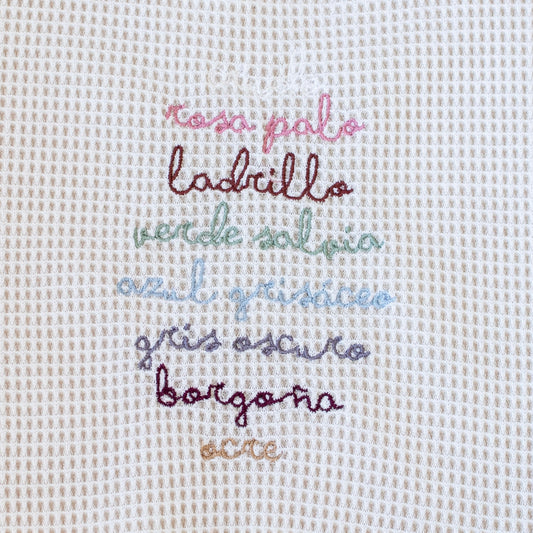 rosa palo
ladrillo
verde salvia
azul grisáceo
gris oscuro
borgoña
ocre